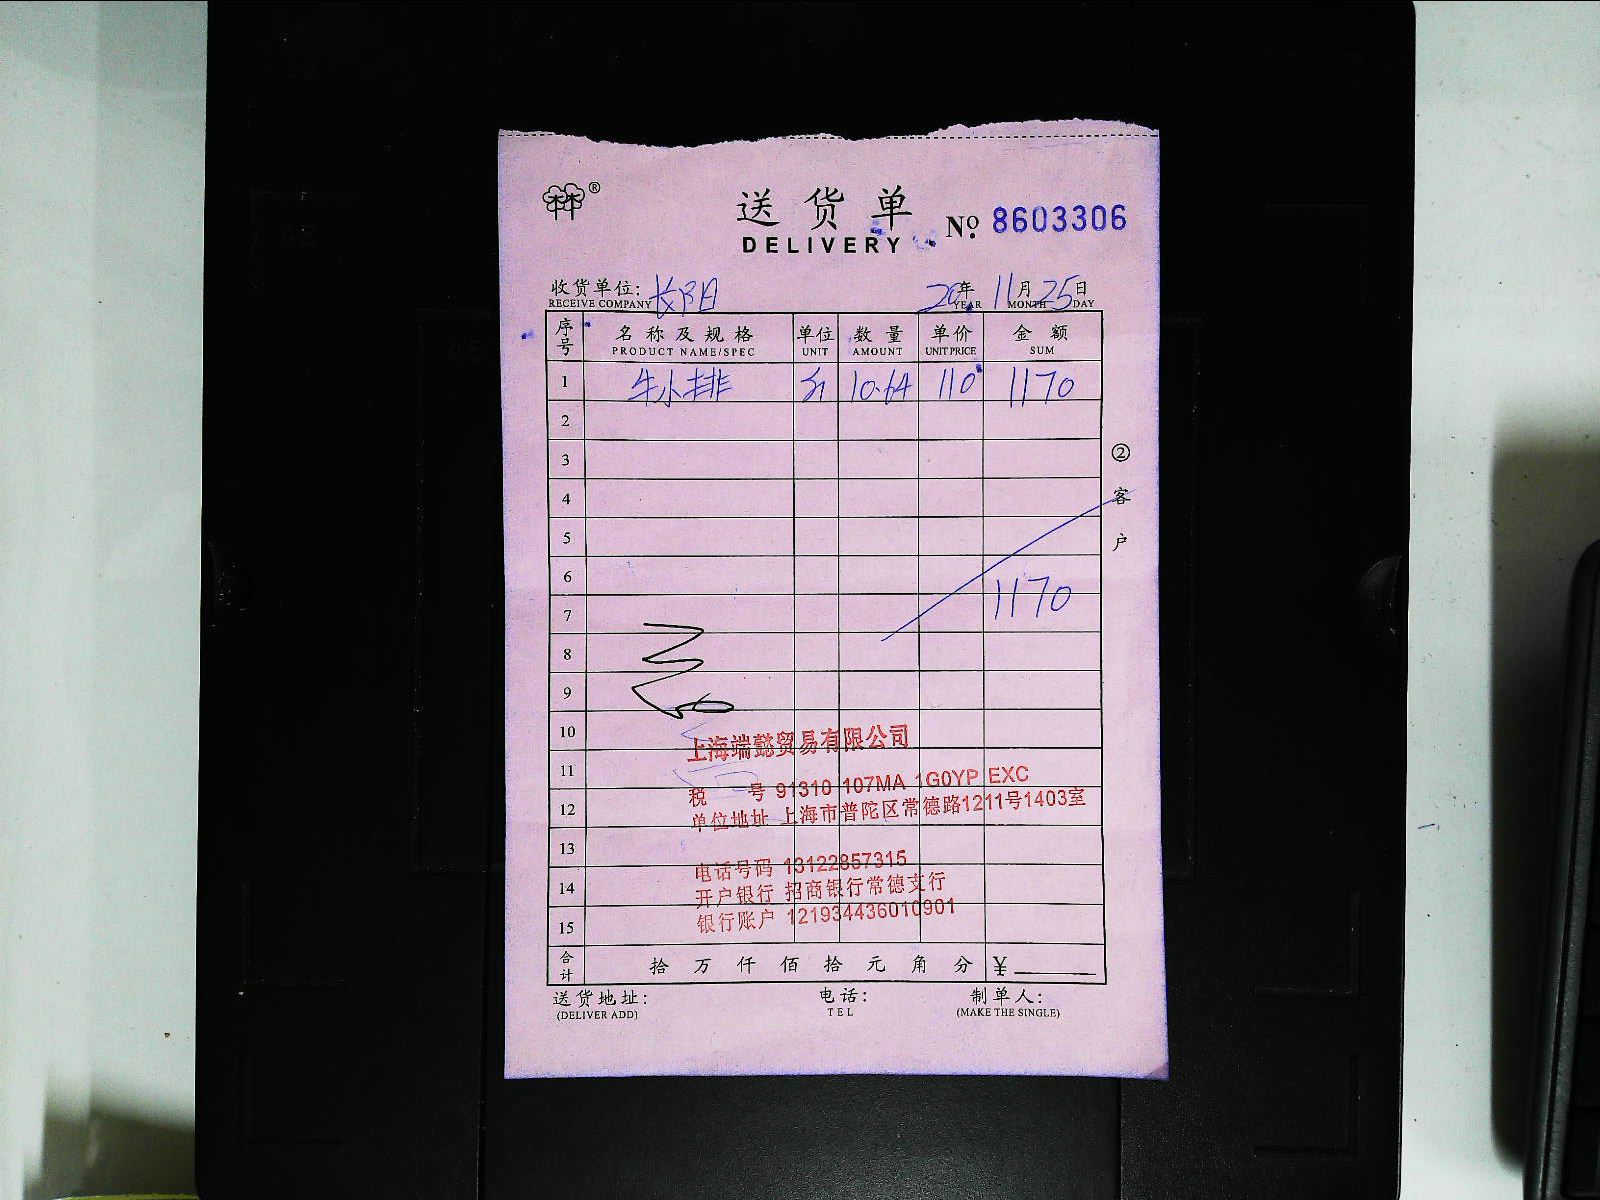 林®
送货单
DELIVERY
№ 8603306
收货单位: 长阳 20年 11月 25日
RECEIVE COMPANY YEAR MONTH DAY
序号 名称及规格 单位 数量 单价 金额
PRODUCT NAME/SPEC UNIT AMOUNT UNIT PRICE SUM
1 牛小排 斤 10.64 110 1170
2
3
4
5
6
7 1170
8
9
10
11
12
13
14
15
上海端懿贸易有限公司
税 号 91310 107MA 1G0YP EXC
单位地址 上海市普陀区常德路1211号1403室
电话号码 13122857315
开户银行 招商银行常德支行
银行账户 121934436010901
合计 拾 万 仟 佰 拾 元 角 分 ¥
送货地址: 电话: 制单人:
(DELIVER ADD) TEL (MAKE THE SINGLE)
②客户